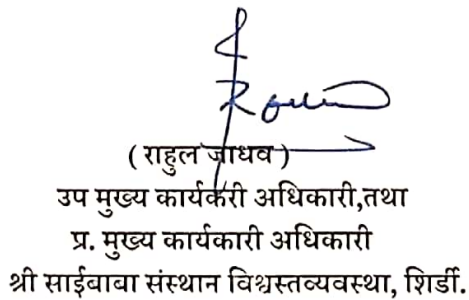 ( राहुल जाधव )
उप मुख्य कार्यकरी अधिकारी,तथा
प्र. मुख्य कार्यकारी अधिकारी
श्री साईबाबा संस्थान विश्वस्तव्यवस्था, शिर्डी.